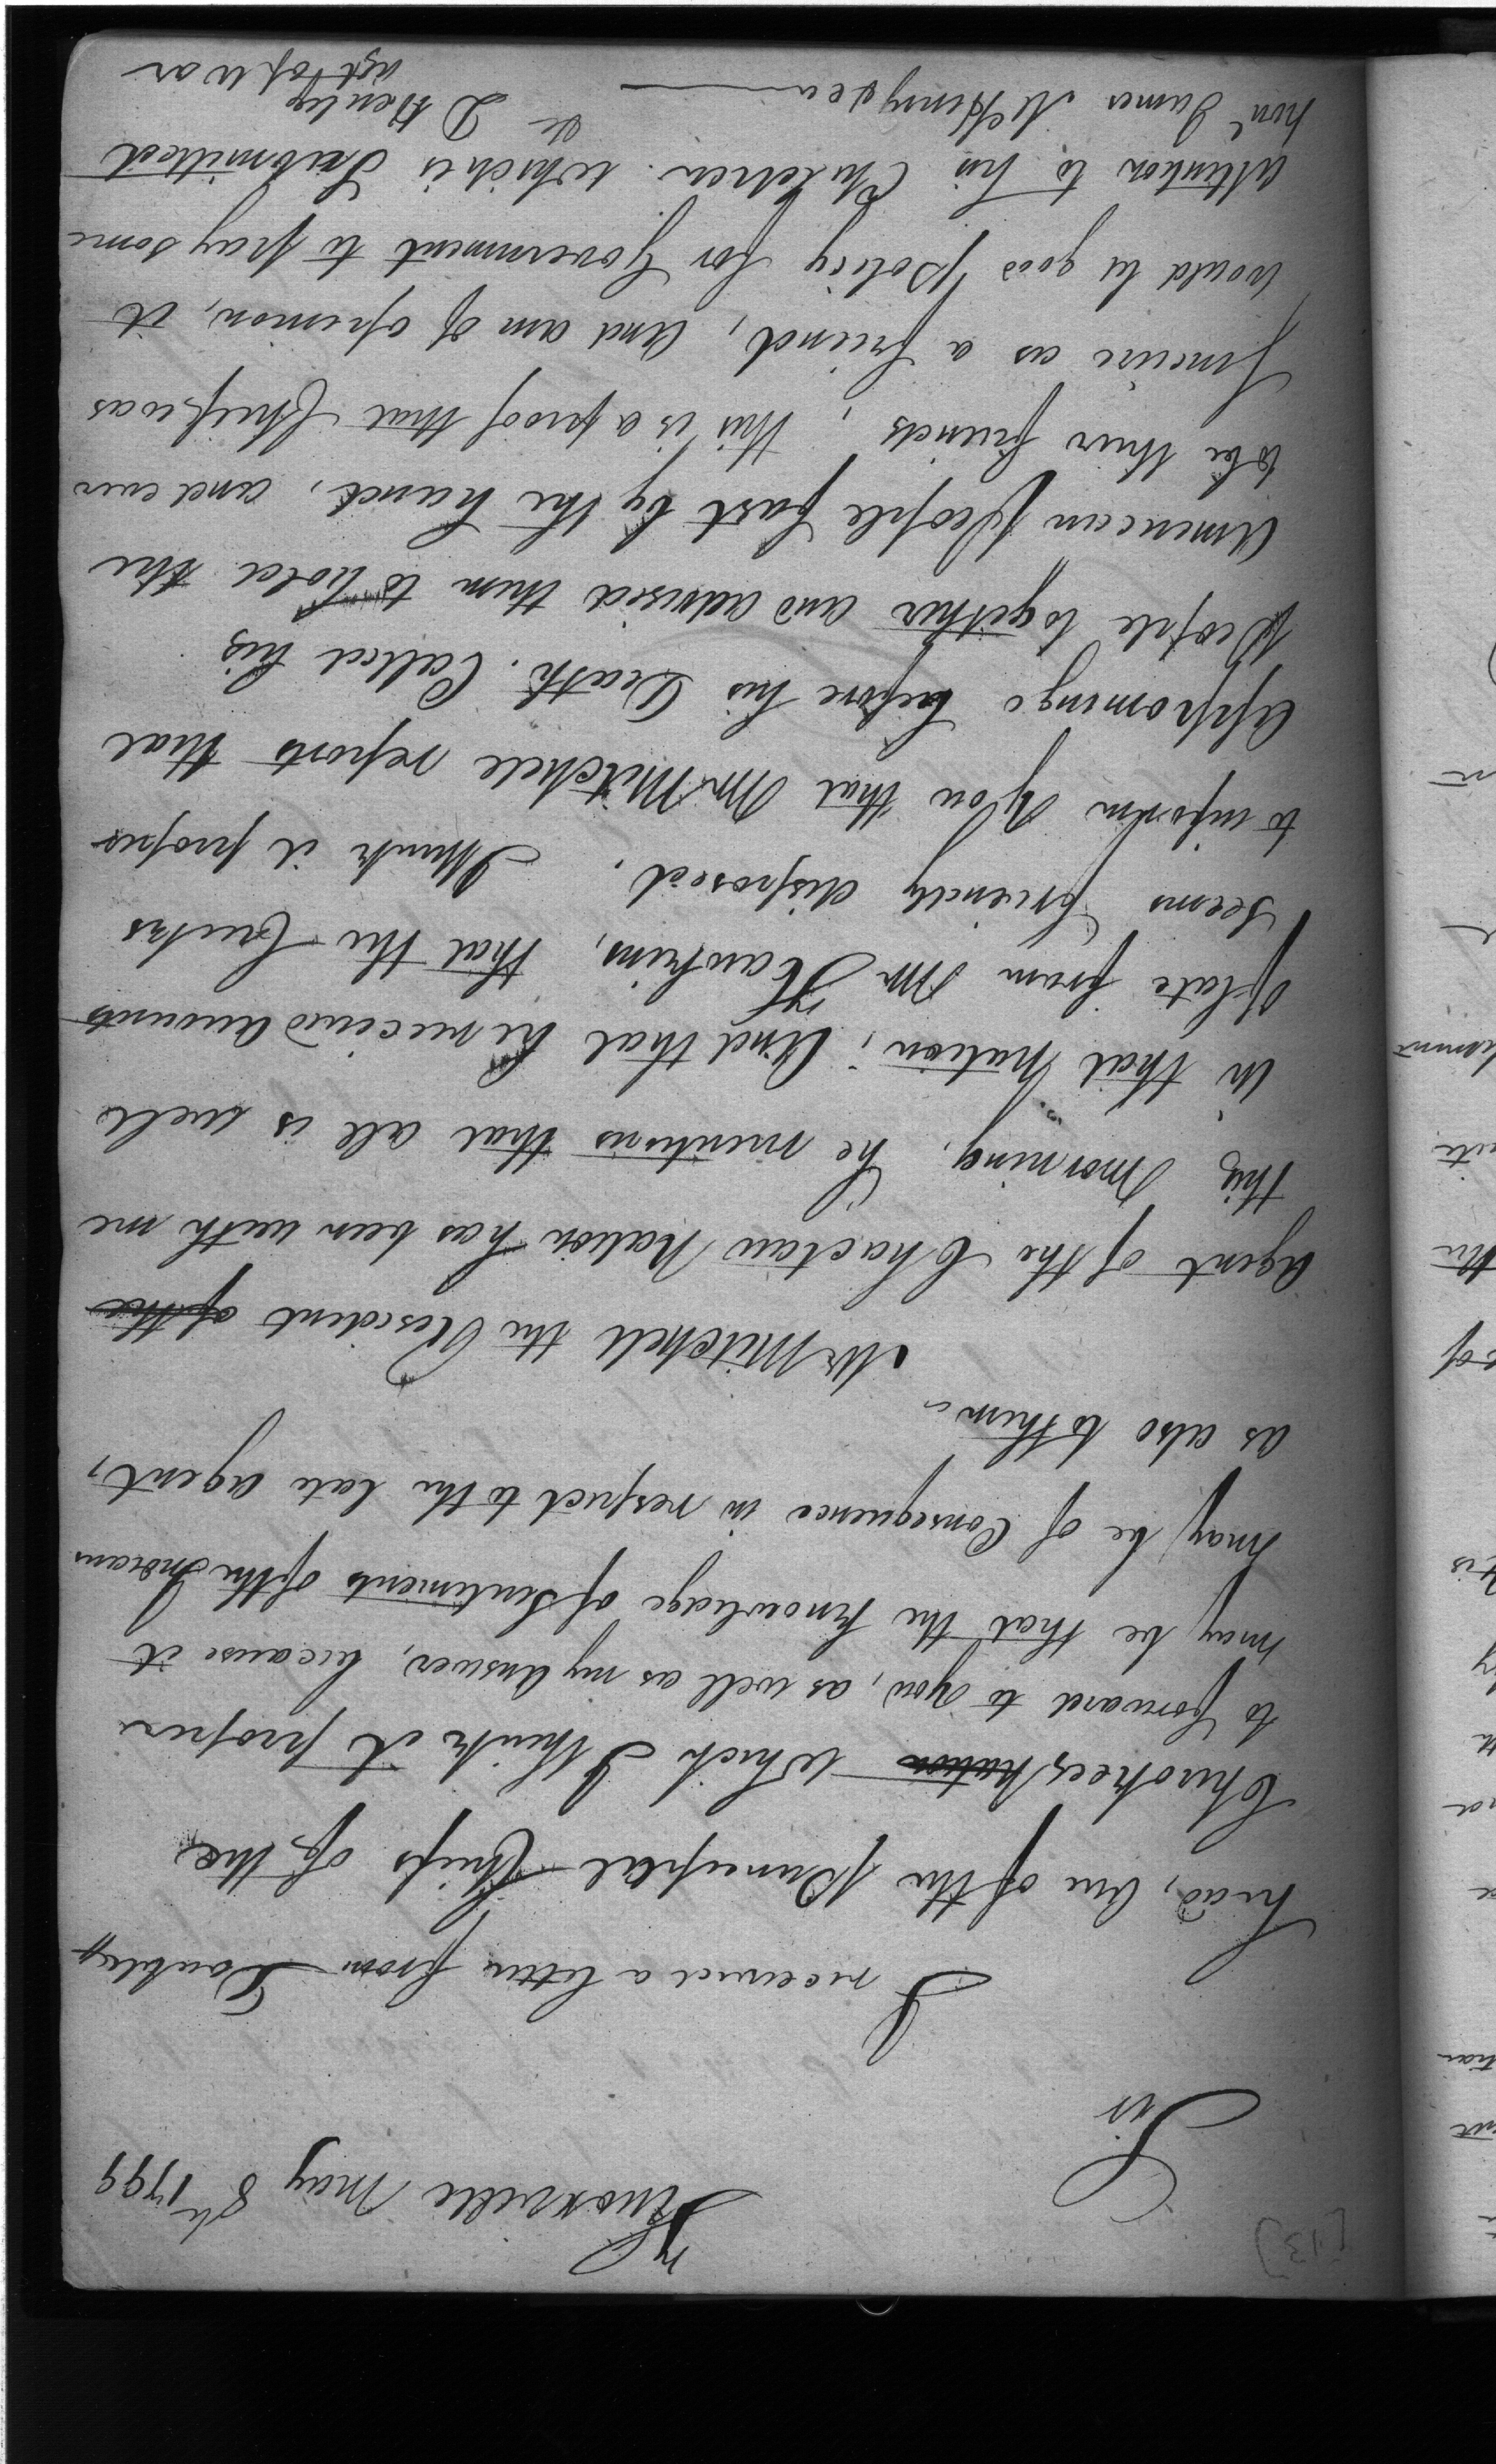 [13]
Knoxville May 8th 1799
Sir
I received a letter from Double
head, One of the Principal Chiefs of the
Cherokees Nation which I think it proper
to forward to you, as well as my answer, because it
may be that the knowledge of Sentiments of the Indians
may be of Consequence in respect to the late agent,
as also to them
Mr Mitchell the Resident of the
agent of the Chactaw Nation has been with me
this morning, he mentions that all is well
in that Nation; And that he received accounts
of late from Mr Hawkins, that the Creeks
seems friendly disposed. I think it proper
to inform you that Mr Mitchell reports that
Oppomingo before his Death. Called his
People together and advised them to hold the
American People fast by the hand, and ever
to be their friends, this is a proof that Chief was
sincere as a friend, And am of opinion, it
would be good Policy for Government to pay some
attention to his Children. which is Submitted
honl James McHenry
D Henley
agt Dp War